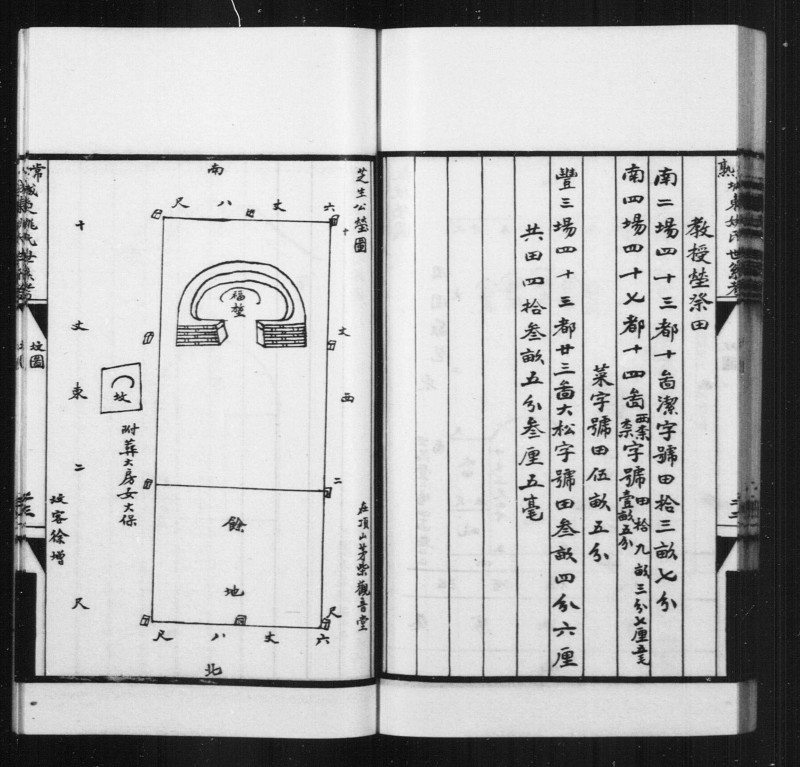 教授塋祭田
南二場四十三都十啚潔字號田拾三畝七分
南四場四十七都十四啚西柰字號田拾九畝三分七厘五毛
壹畝五分
菜字號田伍畝五分
豐三場四十三都廿三啚大松字號田叁畝四分六厘
共田四拾叁畝五分叁厘五毫
芝生公塋圖
在頂山茅柴觀音堂
南
六丈八尺
十丈西二尺
福塋
餘地
六丈八尺
北
坟
附葬大房女大保
十丈東二尺
坟客徐增
坟圖